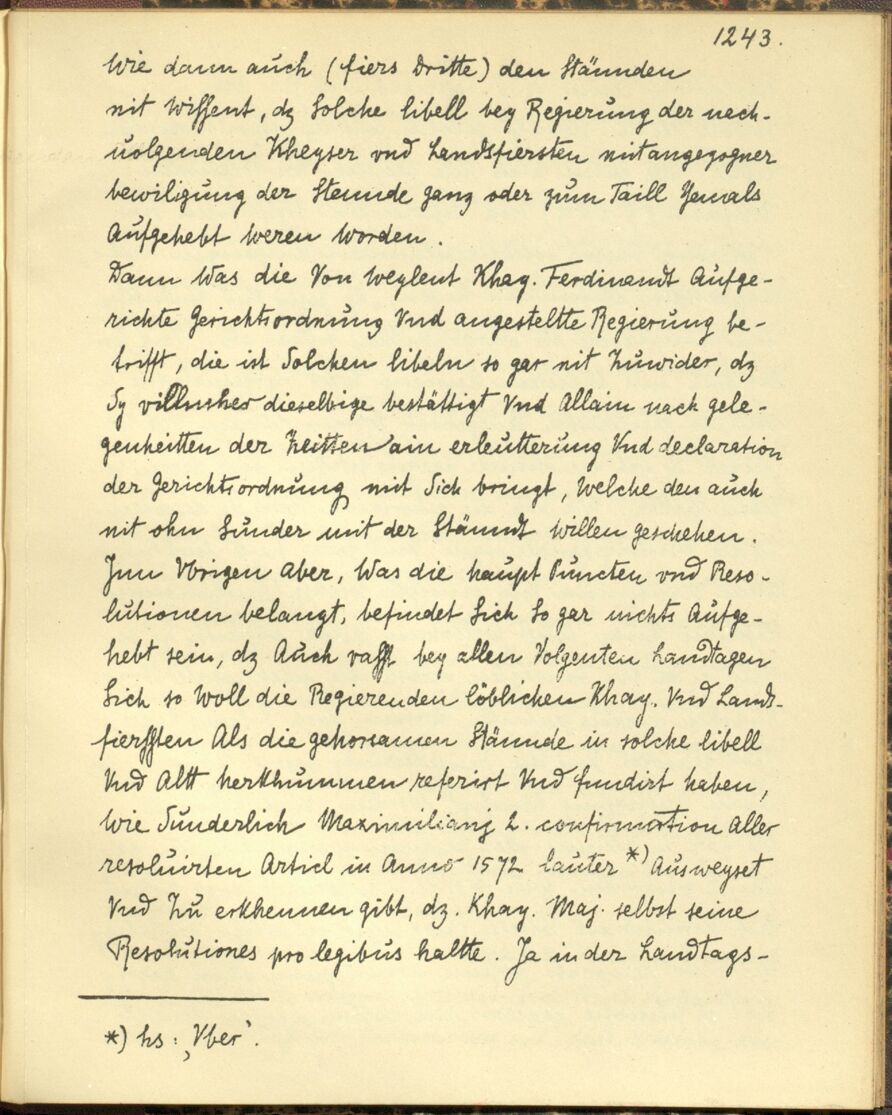 1243.
Wie dann auch (fiers Dritte) den Stännden
nit Wissent, dz Solche libell bey Regierung der nach-
uolgenden Kheyser vnd Landsfiersten mit angezogner
bewiligung der Stennde ganz oder zum Taill Yemals
Aufgehebt weren worden.
Dann Was die Von weylent Khay. Ferdinandt Aufge-
richte Gerichtsordnung Vnd angestelte Regierung be-
trifft, die ist Solchen libeln so gar nit Zuwider, dz
Sy villmeher dieselbige bestättigt Vnd Allain nach gele-
genheitten der Zeitten ain erleutterung Vnd declaration
der Gerichtsordnung mit Sich bringt, Welche den auch
nit ohn Sunder mit der Stänndt willen geschehen.
Jnn Vbrigen Aber, Was die haupt Puncten vnd Reso-
lutionen belangt, befindet Sich So gar nichts Aufge-
hebt sein, dz Auch vasst bey allen Volgenten Landtagen
Sich so Woll die Regierenden löblichen Khay. Vnd Landt-
fierssten Als die gehorsamen Stännde in solche libell
Vnd Altt herkhummen referirt Vnd fundirt haben,
Wie Sunderlich Maximilianj 2. confirmation Aller
resoluirten Articl in Anno 1572 lauter *) Ausweyset
Vnd Zu erkhennen gibt, dz. Khay. Maj. selbst seine
Resolutiones pro legibus haltte. Ja in der Landtags-
*) hs: ‚Vber'.